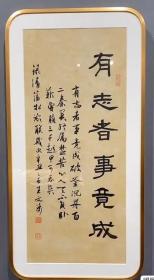 有志者事竟成
有志者事竟成破釜沉舟百
二秦関终属楚苦心人天不負卧
薪嘗膽三千越甲可吞吴
録清蒲松龄联